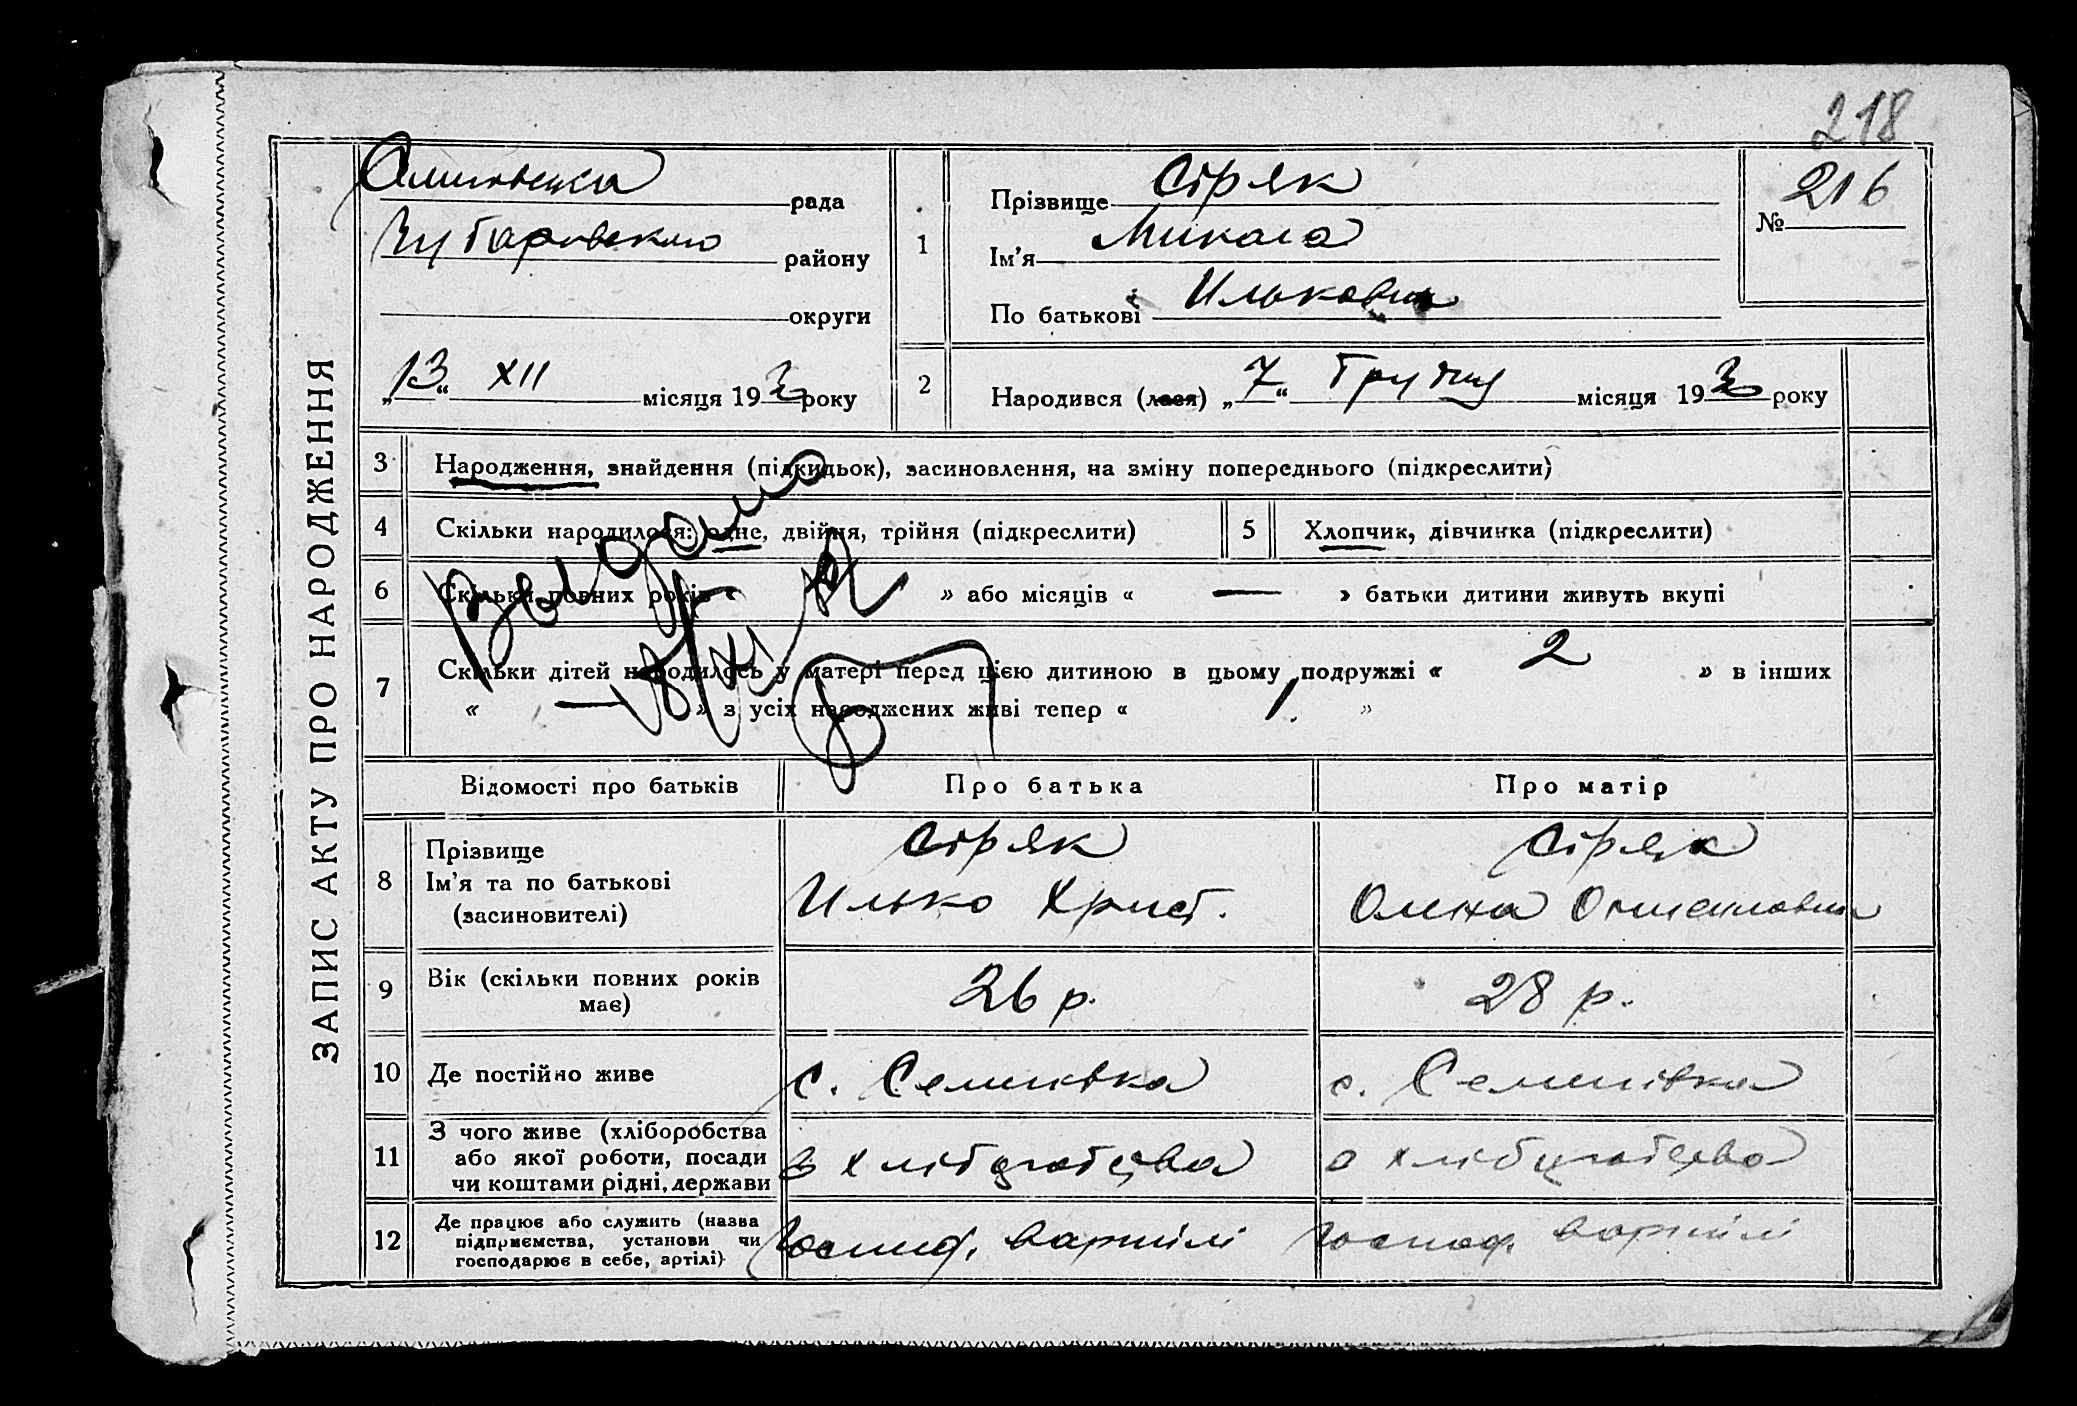 218
ЗАПИС АКТУ ПРО НАРОДЖЕННЯ
рада
Чубарівського району
округи
„13“ XII місяця 193 року
1
Прізвище Сіряк
Ім'я Микола
По батькові Илькович
№ 216
2
Народився (лася) „7“ Грудня місяця 193 року
3 Народження, знайдення (підкидьок), засиновлення, на зміну попереднього (підкреслити)
4 Скільки народилося: одне, двійня, трійня (підкреслити)
5 Хлопчик, дівчинка (підкреслити)
6 Скільки повних років « » або місяців « — » батьки дитини живуть вкупі
7 Скільки дітей народилось у матері перед цією дитиною в цьому подружжі « 2 » в інших
« — » з усіх народжених живі тепер « 1 »
Видано
Відомості про батьків Про батька Про матір
8 Прізвище
Ім'я та по батькові
(засиновителі)
Сіряк
Илько Христ.
Сіряк
Олена
9 Вік (скільки повних років
має)
26 р.
28 р.
10 Де постійно живе
с. Семенівка
с. Семенівка
11 З чого живе (хліборобства
або якої роботи, посади
чи коштами рідні, держави
з хлібробства
з хлібробства
12 Де працює або служить (назва
підприємства, установи чи
господарює в себе, артілі)
Господ. в артілі
Господ. в артілі